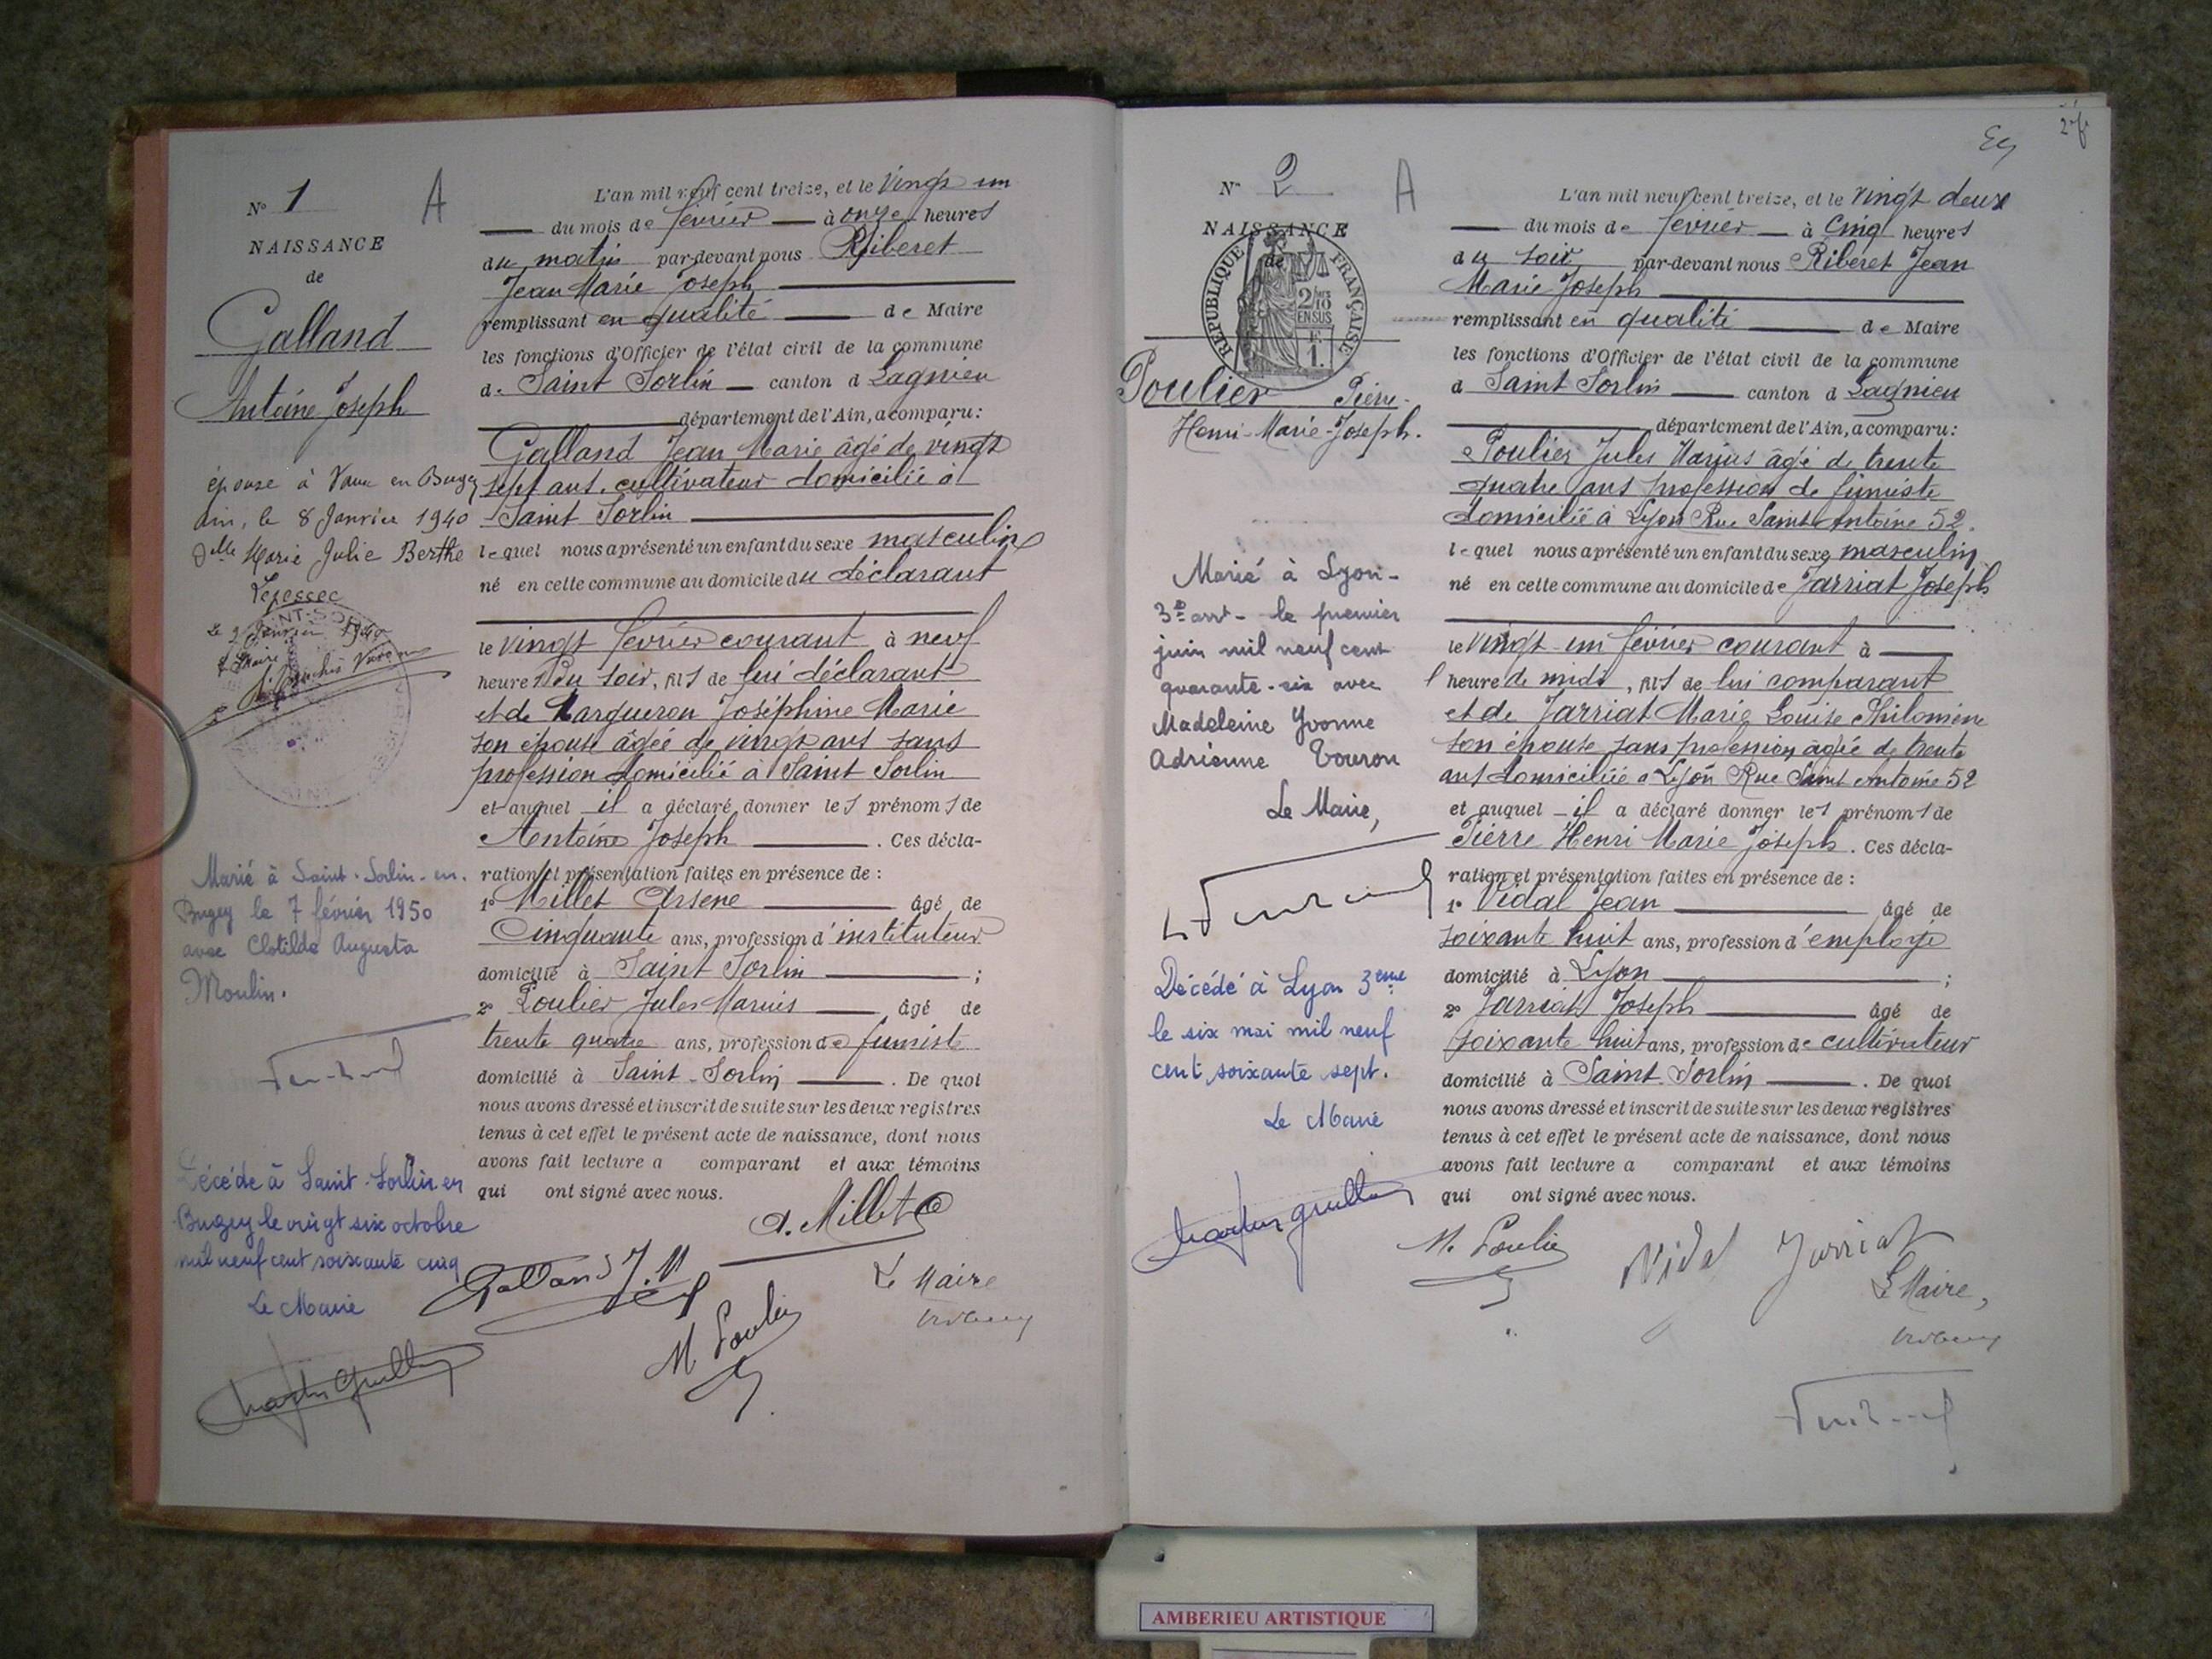 N° 1
A
NAISSANCE
de
Galland
Antoine Joseph
épouse à Vaux en Bugey
Ain, le 8 Janvier 1940
Delle Marie Julie Berthe
Le 9 Janvier 1940
Le Maire
Marié à Saint-Sorlin-en-
Bugey le 7 février 1950
avec Clotilde Augusta
Moulin.
Décédé à Saint-Sorlin en
Bugey le vingt six octobre
mil neuf cent soixante cinq
Le Maire
L'an mil neuf cent treize, et le Vingt un
du mois de février à onze heures
du matin par-devant nous Riberet
Jean Marie Joseph
remplissant en qualité de Maire
les fonctions d'Officier de l'état civil de la commune
de Saint Sorlin canton d Lagnieu
département de l'Ain, a comparu :
Galland Jean Marie âgé de vingt
sept ans, cultivateur domicilié à
Saint Sorlin
lequel nous a présenté un enfant du sexe masculin
né en cette commune au domicile du déclarant
le vingt février courant à neuf
heures du soir, fils de lui déclarant
et de Margueron Joséphine Marie
son épouse âgée de vingt ans sans
profession domicilié à Saint Sorlin
et auquel il a déclaré donner les prénoms de
Antoine Joseph . Ces décla-
ration et présentation faites en présence de :
1° Millet Arsène âgé de
Cinquante ans, profession d'instituteur
domicilié à Saint Sorlin ;
2° Poulier Jules Marius âgé de
trente quatre ans, profession de fumiste
domicilié à Saint-Sorlin . De quoi
nous avons dressé et inscrit de suite sur les deux registres
tenus à cet effet le présent acte de naissance, dont nous
avons fait lecture a comparant et aux témoins
qui ont signé avec nous.
A. Millet
Galland J. M
Le Maire
M Poulier
2
N° 2
A
NAISSANCE
de
RÉPUBLIQUE FRANÇAISE
2/10
EN SUS
E
1.
Poulier Pierre-
Henri-Marie-Joseph.
Marié à Lyon-
3e arrt- le premier
juin mil neuf cent
quarante-six avec
Madeleine Yvonne
Adrienne Touron
Le Maire,
Décédé à Lyon 3ème
le six mai mil neuf
cent soixante sept.
Le Maire
L'an mil neuf cent treize, et le vingt deux
du mois de février à Cinq heures
du soir par-devant nous Riberet Jean
Marie Joseph
remplissant en qualité de Maire
les fonctions d'Officier de l'état civil de la commune
d Saint Sorlin canton d Lagnieu
département de l'Ain, a comparu :
Poulier Jules Marius âgé de trente
quatre ans profession de fumiste
domicilié à Lyon Rue Saint Antoine 52.
lequel nous a présenté un enfant du sexe masculin
né en cette commune au domicile de Jarriat Joseph
le vingt-un février courant à
l'heure de midi, fils de lui comparant
et de Jarriat Marie Louise Philomène
son épouse sans profession âgée de trente
ans domiciliée à Lyon Rue Saint Antoine 52
et auquel il a déclaré donner les prénoms de
Pierre Henri Marie Joseph . Ces décla-
ration et présentation faites en présence de :
1° Vidal Jean âgé de
soixante huit ans, profession d'employé
domicilié à Lyon ;
2° Jarriat Joseph âgé de
soixante huit ans, profession de cultivateur
domicilié à Saint-Sorlin . De quoi
nous avons dressé et inscrit de suite sur les deux registres
tenus à cet effet le présent acte de naissance, dont nous
avons fait lecture a comparant et aux témoins
qui ont signé avec nous.
M. Poulier
Vidal
Jarriat
Le Maire,
AMBERIEU ARTISTIQUE